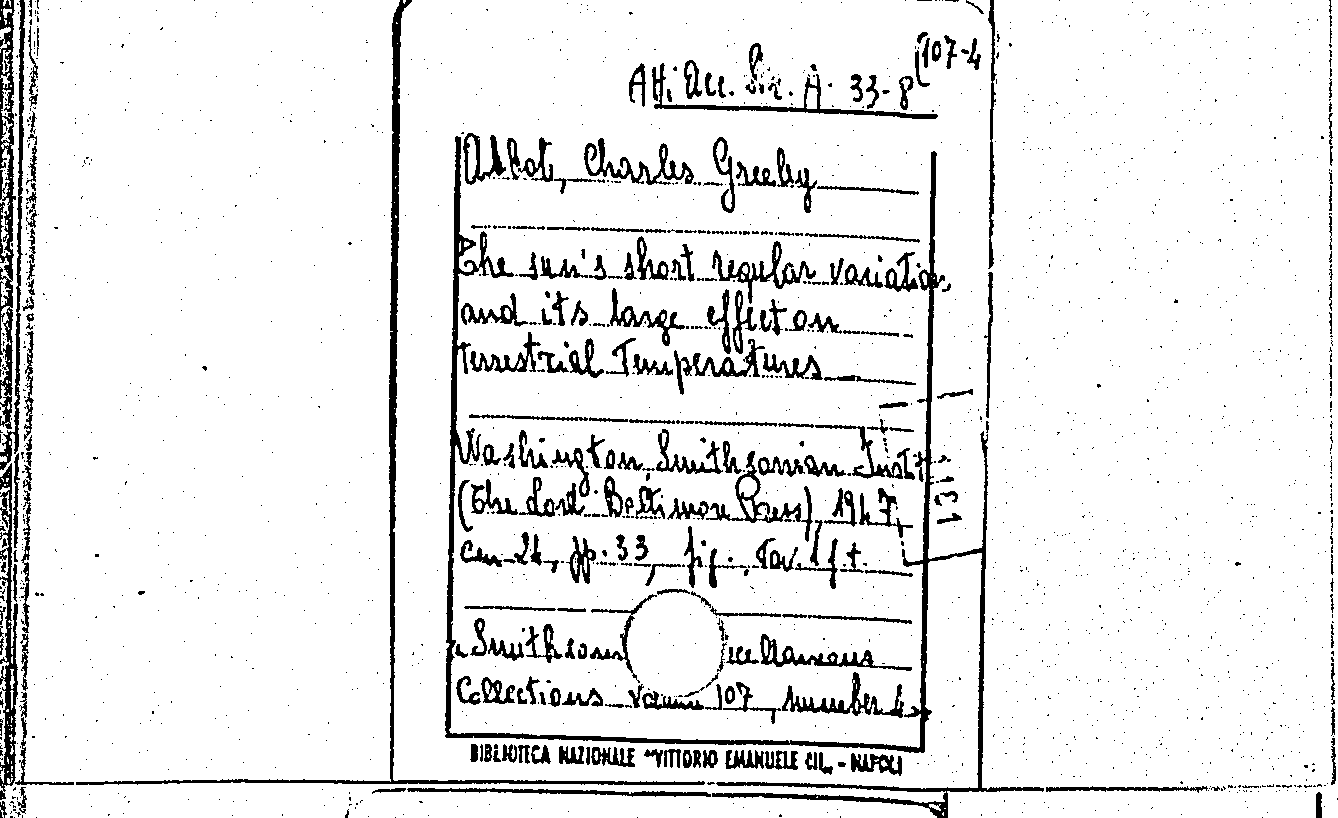 (107-4
Atti Acc. Sc. A. 33-8
Abbot, Charles Greeley
The sun's short regular variation
and its large effect on
terrestrial Temperatures
Washington, Smithsonian Instit.
(The Lord Baltimore Press), 1947,
cm 24, pp. 33, fig., tav. 1 f.t.
« Smithsoni ecellaneous
Collections volume 107, number 4»
BIBLIOTECA NAZIONALE "VITTORIO EMANUELE III„ - NAPOLI